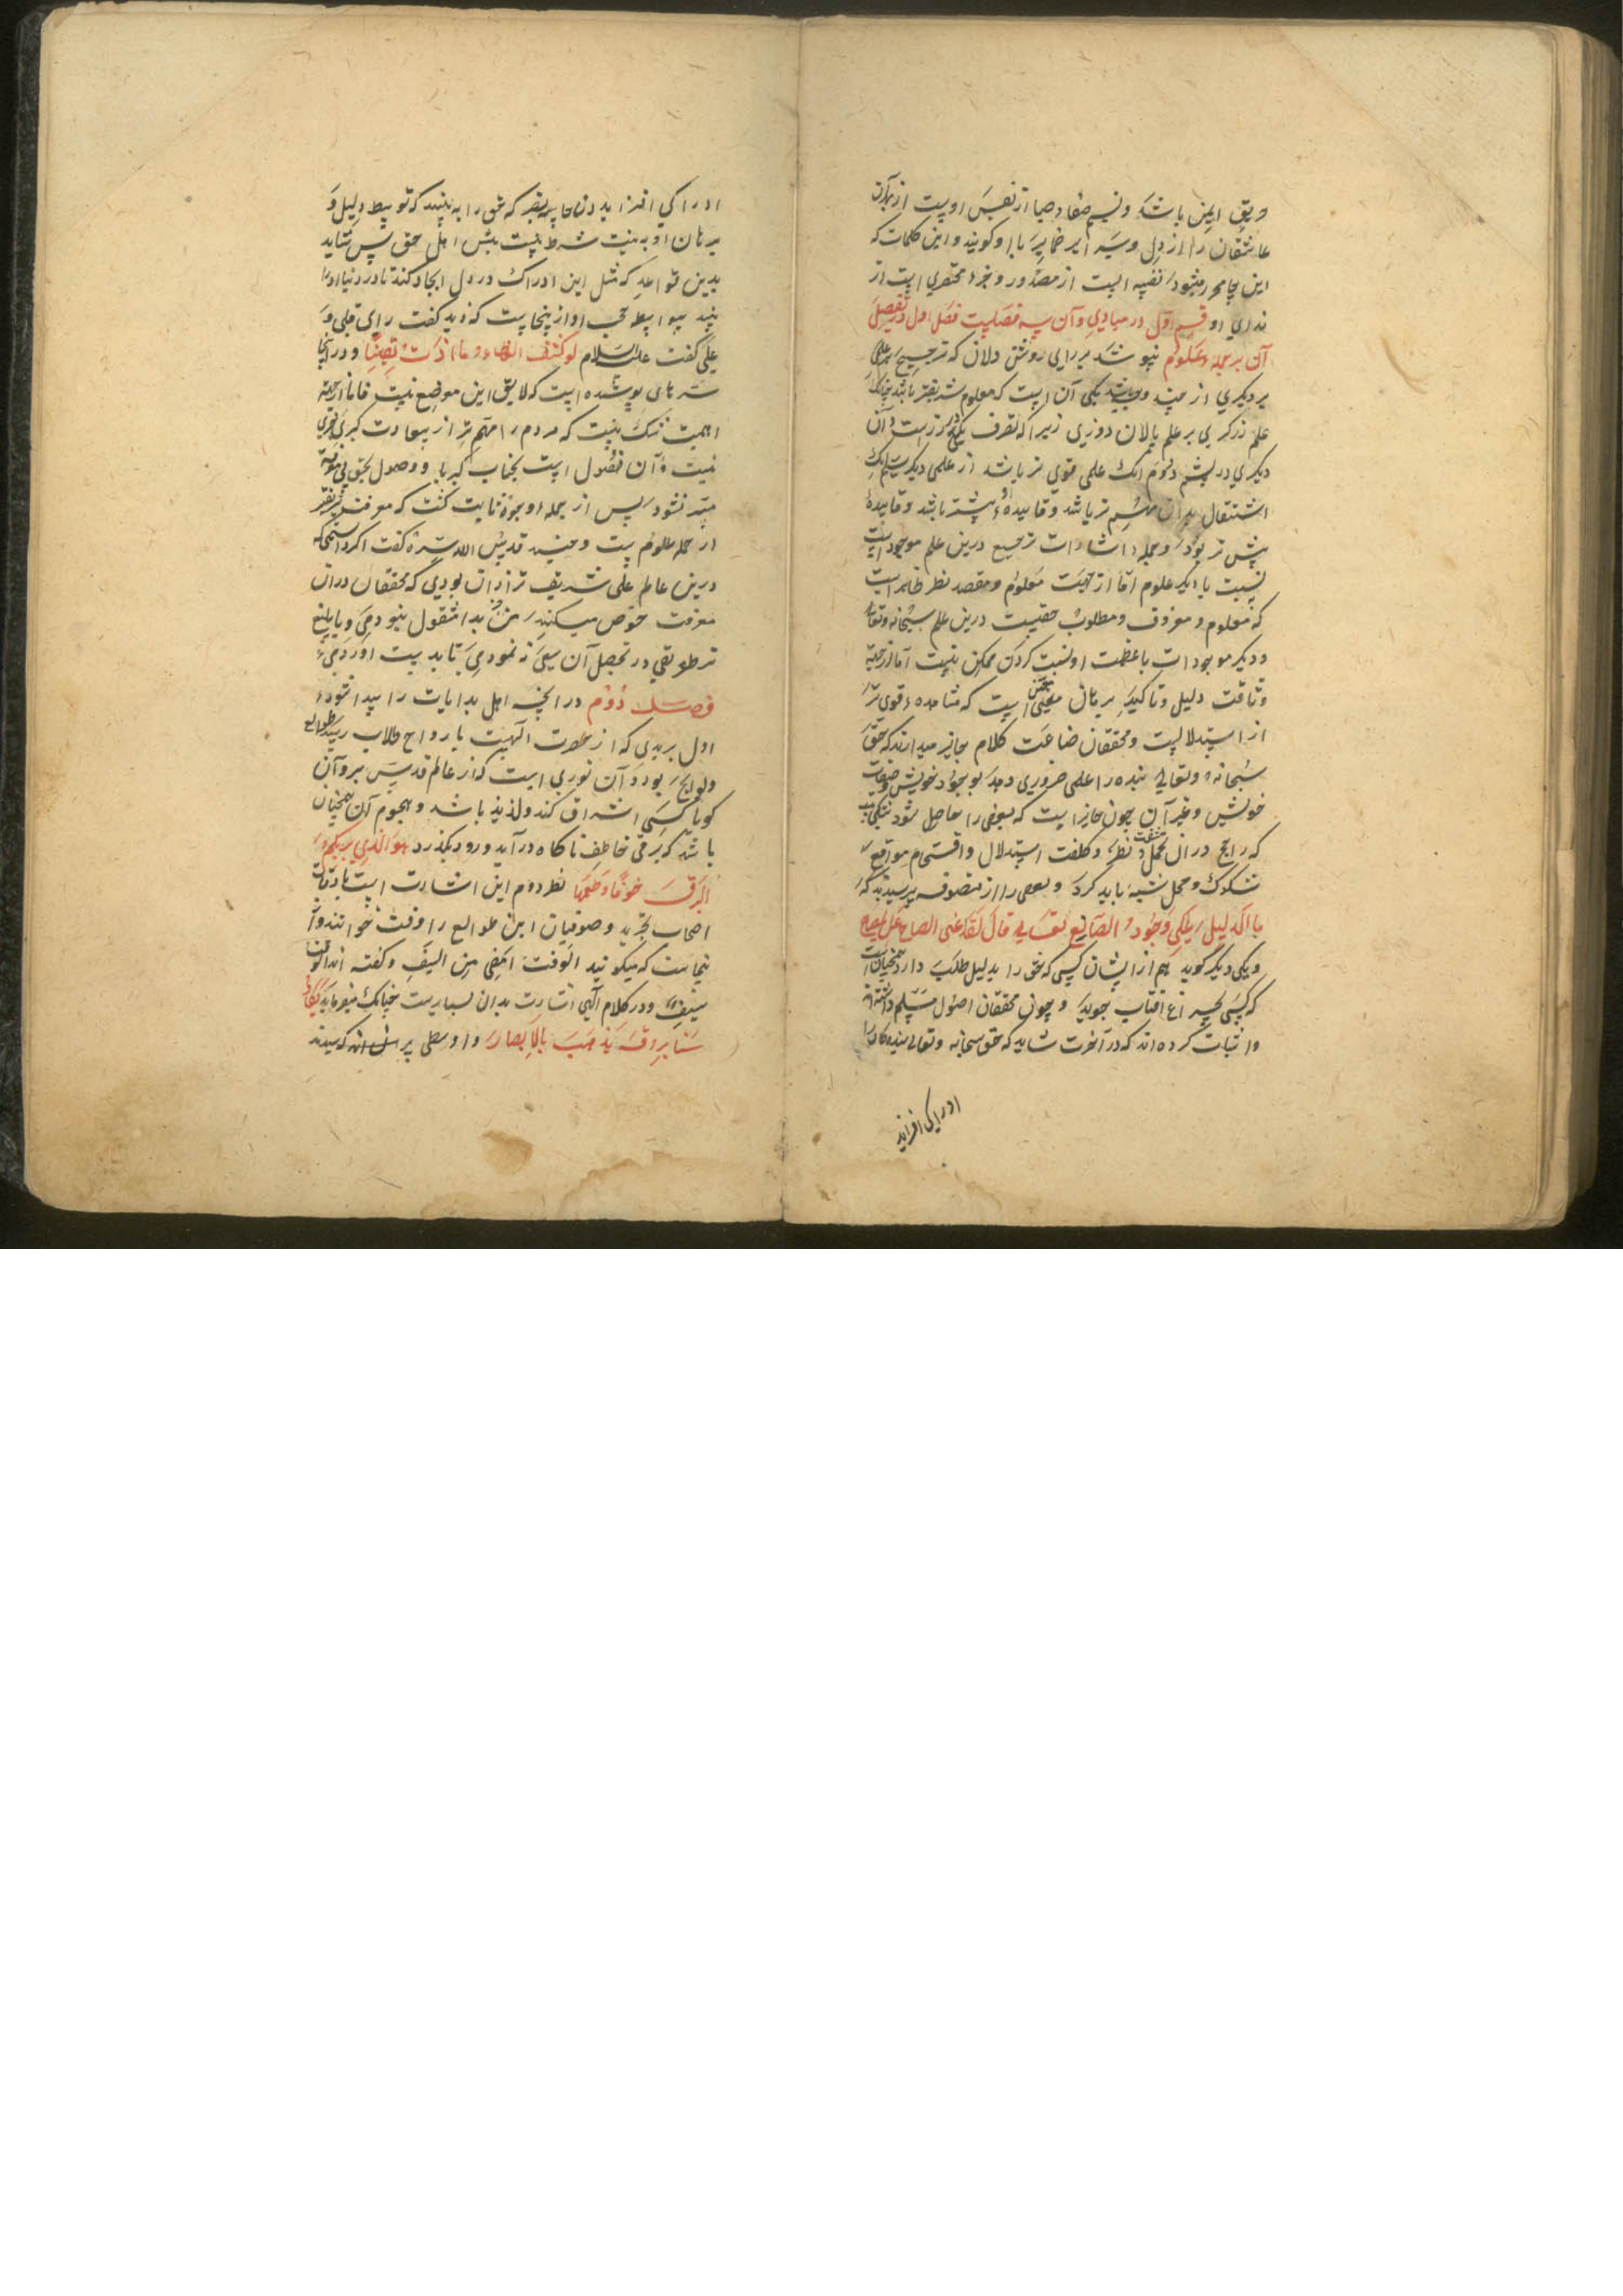 عاشقان را از دل وسر اسر ضمایر با او گویند و این کلمات که
ندای او قسم اول در مبادی و آن سه فصلست فصل اول در تفصیل
آن بر جمله علوم نپوشد بر رای روشن دلان که ترجیح علمی
بر دیگری از چند وجه باشد یکی آن است که معلوم شریفتر باشد چنانک
علم زرگری بر علم پالان دوزی زیرا که تصرف یکی در زرست و آن
دیگری در پشم دوم انک علمی قوی تر باشد از علمی دیگر سیم انک
اشتغال بدان مهم تر باشد و فایده او بیشتر باشد و فایده
بیش تر بود و جمله اشارات ترجیح درین علم موجود است
نسبت با دیگر علوم اما از جهت معلوم و مقصد نظر ظاهر است
که معلوم و معروف و مطلوب حقیست درین علم سبحانه وتعالی
و دیگر موجودات باعظمت او نسبت کردن ممکن نیست اما از جهة
وثاقت دلیل و تاکید برهان یقینی است که مشاهده قوی تر
از استدلالیست و محققان صناعت کلام جایز میدارند که حق
سبحانه وتعالی بنده را علمی ضروری دهد بوجود خویش و صفات
خویش و غیر آن چون جایز است که بعضی را حاصل شود
که رایج در آن تحمل مشقت نظر و کلفت استدلال و اقتحام مواقع
شکوک و محل شبه باید کرد و بعضی را از متصوفه پرسیدند که
ما الدلیل علی وجود الصانع تعالی قال لقد اغنی الصباح عن المصباح
و یکی دیگر گوید هم از ایشان کسی که حق را بدلیل طلب دارد همچنان است
که کسی بچراغ آفتاب جوید و چون محققان اصول مسلم داشته اند
و اثبات کرده اند که در آخرت شاید که حق سبحانه وتعالی بندگان را
ادراکی افریند
ادراکی افریند در حاسه بصر که حق را به بینند که توسط دلیل و
برهان او به نیت شرط نیست پیش اهل حق پس شاید
بدین قواعد که مثل این ادراک در دل ایجاد کند تا در دنیا او را
بیند بیواسطه اواز اینجاست که گفت رای قلبی و
علی گفت علیه السلام لو کشف الغطاء ما ازددت یقینا و در اینجا
سرهای پوشیده است که لایق این موضع نیست فاما از جهة
اهمیت شک نیست که مردم را مهم تر از سعادت کبری چیزی
نیست و آن فضول است بجناب کبریا و وصول بحق بی معرفة
میسر نشود پس از جمله وجوه ثابت گشت که معرفت شریفتر
از جمله علوم ست و جنید قدس الله سره گفت اگر دانستمی که
درین عالم علمی شریف تر از ان بودی که محققان دران
معرفت خوض میکنند من جز بدان مشغول نبودمی و بابلغ
تر طریقی در تحصیل آن سعی نمودمی تا بدست اوردمی
فصل دوم در انچه اهل بدایات را پیدا شود
اول بریدی که از حضرت الهیت بارواح طلاب رسد طوالع
ولوایح بود و آن نوری است که از عالم قدس بر روان
گویا کسی اشراق کند و لذیذ باشد و هجوم آن همچنان
باشد که برقی خاطف ناگاه درآید و زود بگذرد هو الذی یریکم
البرق خوفا وطمعا نظر دوم این اشارت است بادقات
اصحاب تجرید و صوفیان این طوالع را وقت خوانند و از
اینجاست که میگویند الوقت امضی من السیف و گفته اند الوقت
سیف و در کلام الهی اشارت بدان بسیارست چنانک میفرماید یکاد
سنا برقه یذهب بالابصار و واسطی پرسیدند